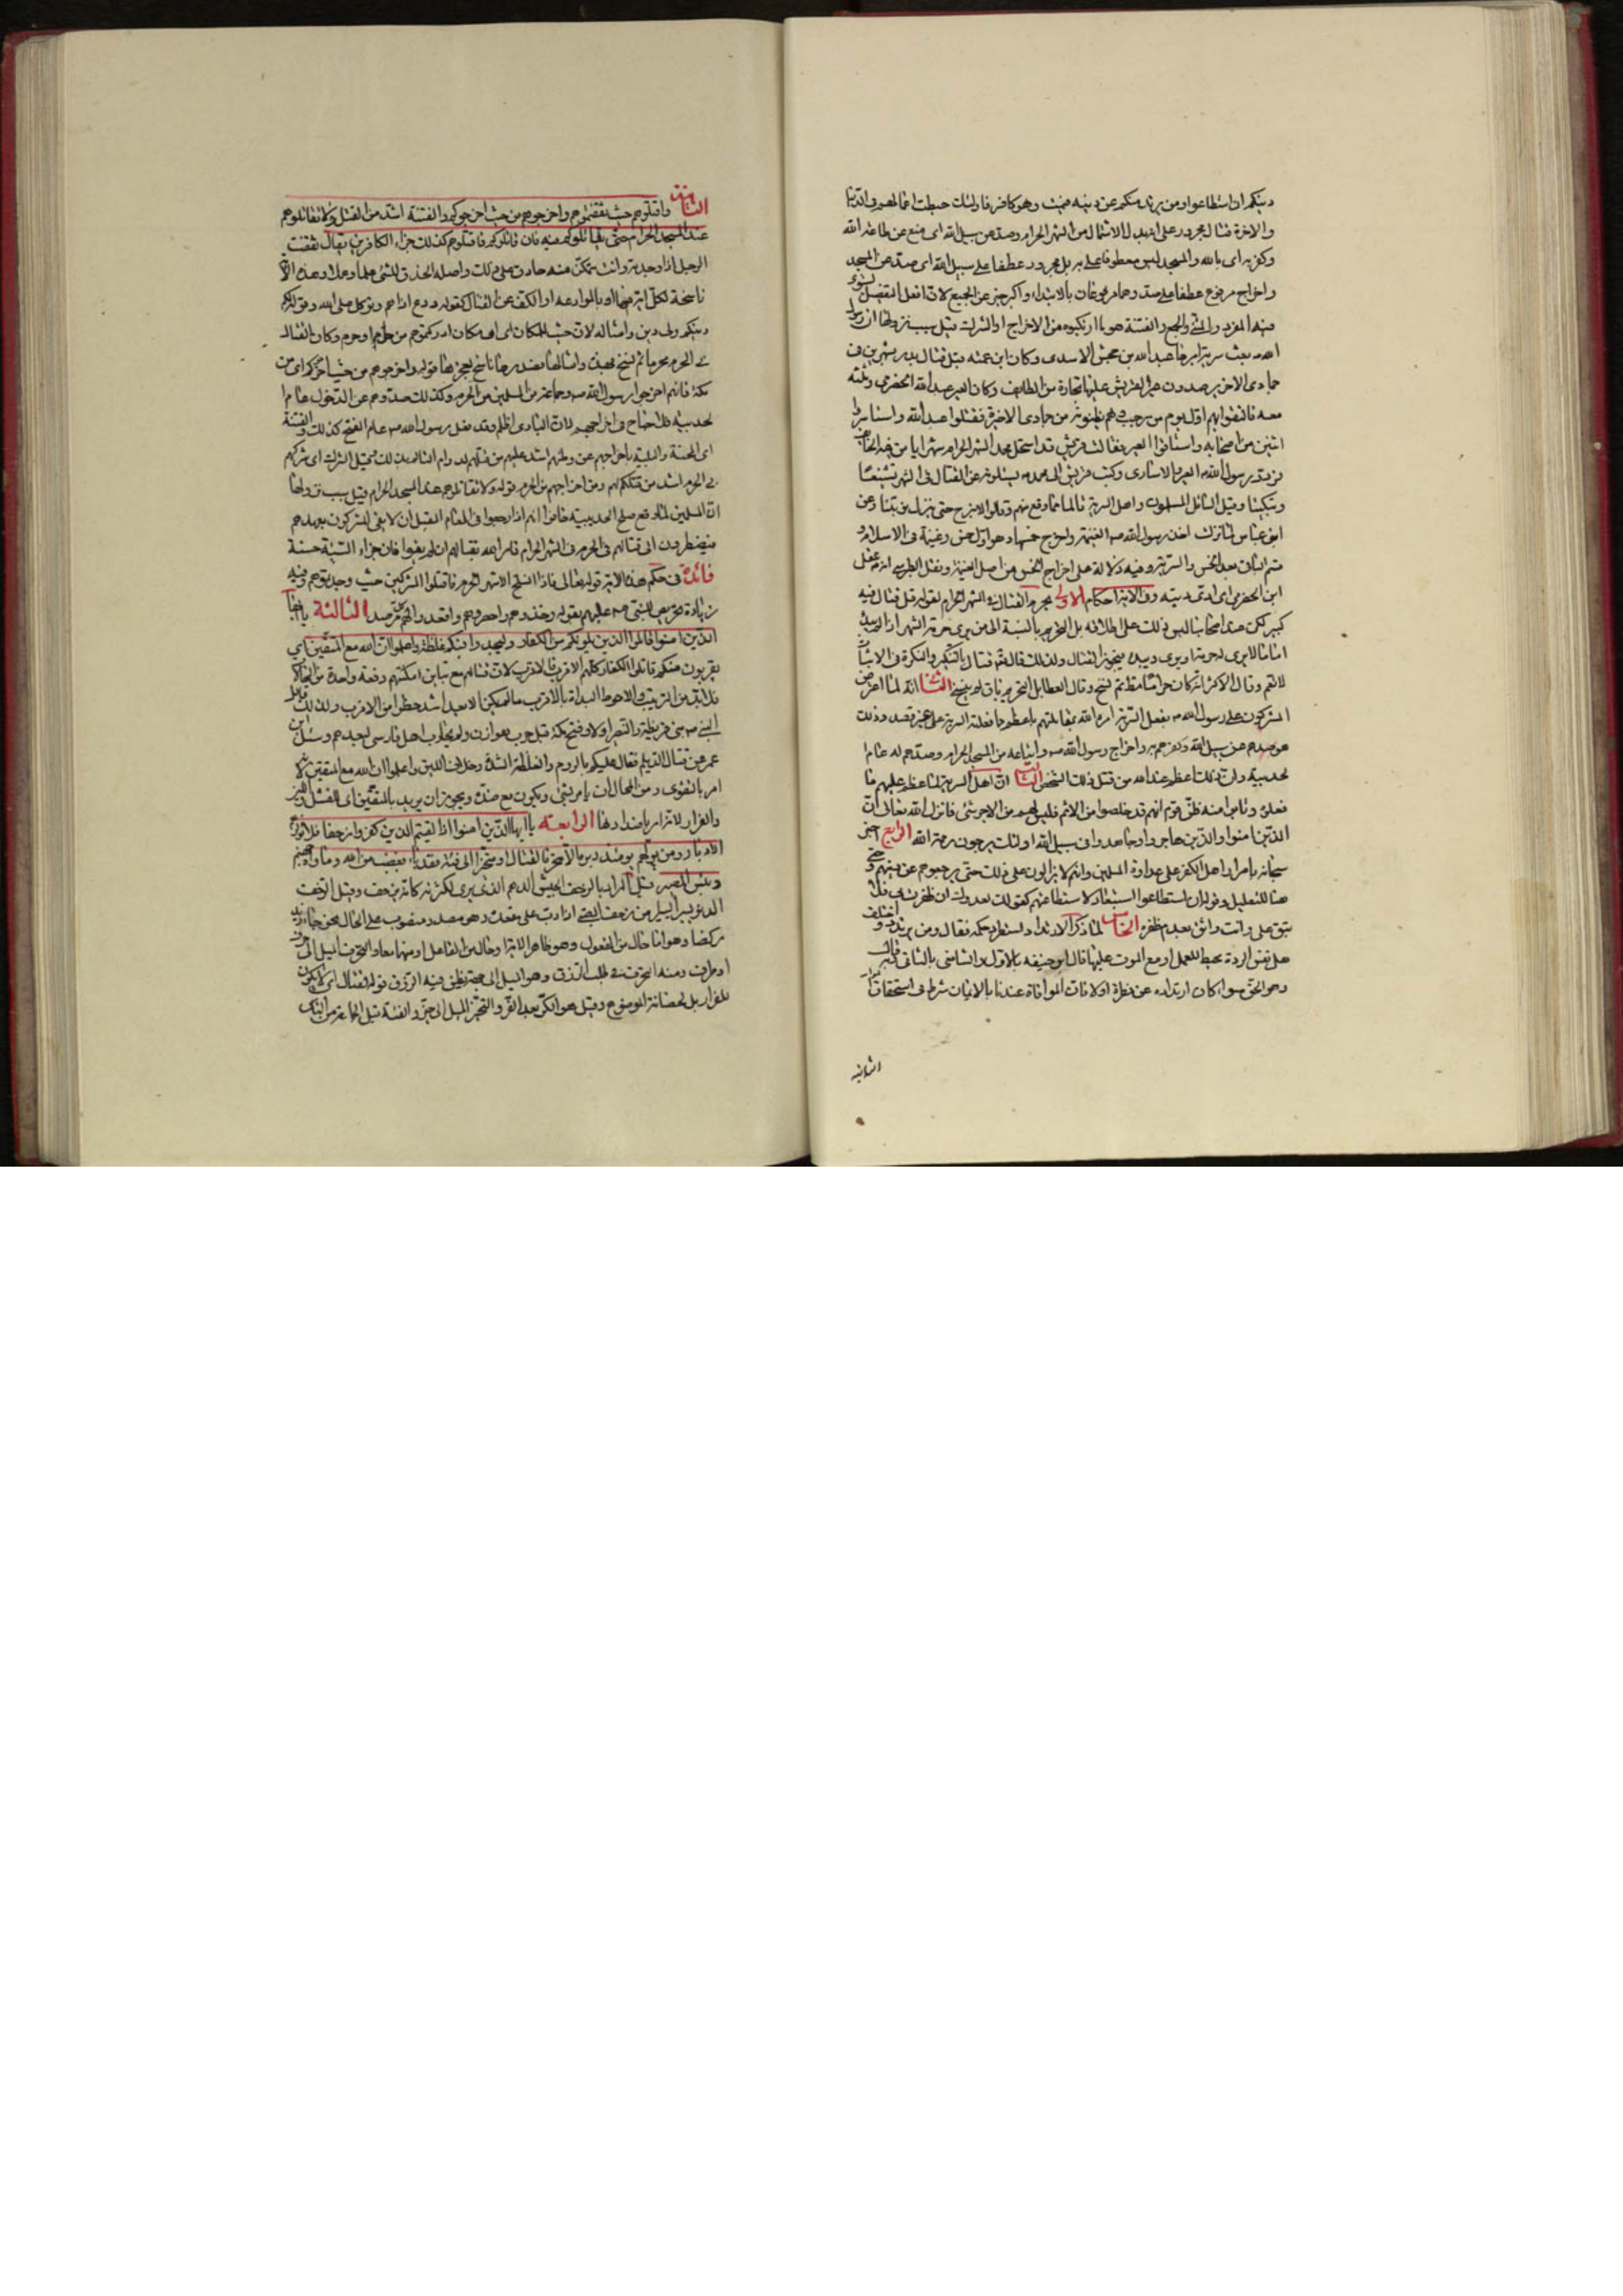 دينكم ان استطاعوا ومن يرتدد منكم عن دينه فيمت وهو كافر فاولئك حبطت اعمالهم فى الدنيا
والاخرة قتال مجرور على انه بدل الاشتمال من الشهر الحرام وصد عن سبيل الله اى منع عن طاعة الله
وكفر به اى بالله والمسجد ليس معطوفا على به بل مجرور عطفا على سبيل الله اى صد عن المسجد
واخراج مرفوع عطفا على صد وهما مرفوعان بالابتداء واكبر خبر عن الجميع لان افعل التفضيل يستوى
فيه المفرد والمثنى والجمع والفتنة هو ما ارتكبوه من الاخراج او الشرك قيل سبب نزولها ان رسول
الله بعث سرية امرها عبد الله بن جحش الاسدى وكان ابن عمته قبل قتال بدر بشهرين فى
جمادى الاخر يرصدون عيرا لقريش عليها تجارة من الطايف وكان العير عبد الله الحضرمى وثلثه
معه فالتقوا بهم اول يوم من رجب وهم يظنونه من جمادى الاخرة فقتلوا عبد الله واستاسروا
اثنين من اصحابه واستاقوا العير فقالت قريش قد استحل محمد الشهر الحرام شهرا يامن فيه الخايف
فرد رسول الله العير والاسارى وكتب قريش الى محمد يسئلونه عن القتال فى الشهر تشنيعا
وتبكيتا وقيل السائل المسلمون واهل السرية قالما مما وقع منهم وقالوا لا نبرح حتى ينزل توبتنا وعن
ابن عباس لما نزلت اخذ رسول الله الغنيمة واخرج خمسها وهو اول خمس وغنيمة فى الاسلام و
قسم الباقى بعد الخمس والسرية وفيه دلالة على اخراج الخمس من اصل الغنيمة ونقل الطبرسى انه عقل
ابن الحضرمى اى ادى ديته وفى الاية احكام الاول يحرم القتال فى الشهر الحرام لقوله قل قتال فيه
كبير لكن عند اصحابنا ليس ذلك على اطلاقه بل التحريم بالنسبة الى من يرى حرمة الشهر اذا لم يبدء
اما من لا يرى له حرمة او يرى ويبدء فيجوز القتال ولذلك قال تعالى قتال بالتنكير والنكرة فى الاثبات
لا تعم وقال الاكثر انه كان حراما مطلقا ثم نسخ وقال العطا بل التحريم باق لم ينسخ الثانى انه لما اعترض
المشركون على رسول الله بفعل السرية امره الله بمقابلتهم باعظم مما فعلته السرية على غير قصد وذلك
هو صدهم عن سبيل الله وكفرهم به واخراج رسول الله واتباعه من المسجد الحرام وصدهم له عام
لحديبية وان ذلك اعظم عند الله من قتل ذلك الشخص الثالث ان اهل السرية لما عظم عليهم ما
فعلوه وتابوا منه ظن قوم انهم قد خلصوا من الاثم فليس لهم من الاجر شئ فانزل الله تعالى ان
الذين امنوا والذين هاجروا وجاهدوا فى سبيل الله اولئك يرجون رحمة الله الرابع اخبر
سبحانه باصرار اهل الكفر على عداوة المسلمين وانهم لا يزالون على ذلك حتى يرجعوهم عن دينهم وحتى
هنا للتعليل وقوله ان استطاعوا استبعاد لاستطاعتهم كقولك لعدوك ان ظفرت بى فلا
تبق على وانت واثق بعدم ظفره الخامس لما ذكر الارتداد استطرد حكمه فقال ومن يرتدد واختلف
هل نفس الردة محبط للعمل او مع الموت عليها قال ابو حنيفه بالاول والشافعى بالثانى قيل
وهو الحق سواء كان ارتداده عن فطرة او لا فان الموافاة عندنا بالايمان شرط فى استحقاق الثواب
الثانيه
الثانية واقتلوهم حيث ثقفتموهم واخرجوهم من حيث اخرجوكم والفتنة اشد من القتل ولا تقاتلوهم
عند المسجد الحرام حتى يقاتلوكم فيه فان قاتلوكم فاقتلوهم كذلك جزاء الكافرين يقال ثقفت
الرجل اذا وجدته وانت متمكن منه حاذق على ذلك واصله الحذق للشئ علما وعملا وهذه الاية
ناسخة لكل اية فيها امر بالموادعه او الكف عن القتال كقوله ودع اذاهم وتوكل على الله وقوله لكم
دينكم ولى دين وامثاله لان حيث للمكان اى اى مكان ادركتموهم من حل او حرم وكان القتال
فى الحرم محرما ثم نسخ بهذه وامثالها فصدرها ناسخ لعجزها قوله واخرجوهم من حيث اخرجوكم اى من
مكة فانهم اخرجوا رسول الله وجماعة من المسلمين من الحرم وكذلك صدوهم عن الدخول عام ا
لحديبيه فلا جناح فى اخراجهم لان البادى اظلم وقد فعل رسول الله عام الفتح كذلك والفتنة
اى المحنة والبلية باخراجهم عن وطنهم اشد عليهم من قتلهم لدوام التالم بذلك وقيل الشرك اى شركهم
فى الحرم اشد من قتلكم لهم ومن اخراجهم من الحرم قوله ولا تقاتلوهم عند المسجد الحرام وقيل سبب نزولها
ان المسلمين لما وقع صلح الحديبية خافوا انهم اذا رجعوا فى العام المقبل ان لا يفى المشركون بعهدهم
فيضطرون الى قتالهم فى الحرم فى الشهر الحرام فامر الله بقتالهم ان لم يفوا فان جزاء السيئة حسنة
فائدة فى حكم هذه الاية قوله تعالى فاذا انسلخ الاشهر الحرم فاقتلوا المشركين حيث وجدتموهم وفيه
زيادة تحريص للنبى عليهم بقوله وخذوهم واحصروهم واقعدوا لهم كل مرصد الثالثة يا ايها
الذين امنوا قاتلوا الذين يلونكم من الكفار وليجدوا فيكم غلظة واعلموا ان الله مع المتقين اى
يقربون منكم قاتلوا الكفار كلهم الاقرب فالاقرب لان قتالهم مع تباين امكنتهم دفعة واحدة من المحال
فلا بد من الترتيب والاحوط البداة بالاقرب ما لم يكن الابعد اشد خطرا من الاقرب ولذلك قاتل
النبى بنى قريظة والنضير اولا وفتح مكة قبل حرب هوازن ولم يحارب اهل فارس لبعدهم وسئل ابن
عمر عن قتال الديلم فقال عليكم بالروم والغلظة الشدة وخلاف اللين واعلموا ان الله مع المتقين لانه
امر بالتقوى ومن المحال ان يامر بشئ ويكون مع ضده ويجوز ان يريد بالمتقين اى الفشل والجبن
والفرار للامر باضدادها الرابعة يا ايها الذين امنوا اذا لقيتم الذين كفروا زحفا فلا تولوهم
الادبار ومن يولهم يومئذ دبره الا متحرفا لقتال او متحيزا الى فئة فقد باء بغضب من الله وماواه جهنم
وبئس المصير قيل المراد بالزحف الجيش الدهم الذى يرى لكثرته كانه يزحف وقيل الزحف
الدنو يسيرا يسيرا من زحف الصبى اذا دب على مقعده وهو مصدر منصوب على الحال نحو جاء زيد
ركضا وهو اما حال من المفعول وهو ظاهر الاية او حال من الفاعل او منهما معا والتحرف الميل الى حرف
او طرف ومنه التحرف فى طلب الرزق وهو الميل الى جهة يظن فيه الرزق قوله لقتال اى لا يكون
للفرار بل لحصانة الموضع وقيل هو الكر بعد الفر والتحيز الميل الى حيز والفئة قيل الجماعة من الناس